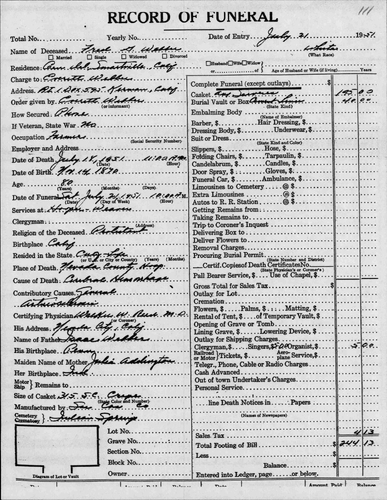 111
RECORD OF FUNERAL
Total No. Yearly No. Date of Entry July 21 1951
Name of Deceased Webber White
(What Race)
Married Single Widowed Divorced Husband Wife Widow
Residence Smartville, Calif of Age of Husband or Wife (if living)
Charge to Everette Webber
Address Rt. 1 Box 525, Kerman, Calif
Order given by Everette Webber
(or informant)
How Secured Phone
If Veteran, State War No
Occupation Farmer
(Social Security Number)
Employer and Address
Date of Death July 18, 1951
Date of Birth 1870
Age 80
(Years) (Months) (Days)
Date of Funeral Sat July 21, 1951
Services at
Clergyman
Religion of the Deceased Protestant
Birthplace Calif
Resided in the State Entire Life
Place of Death Nevada County Hosp.
Cause of Death Cerebral Hemorrhage
Contributory Causes General
Certifying Physician M.D.
His Address Nevada City, Calif
Name of Father Isaac Webber
His Birthplace
Maiden Name of Mother Julia Addington
Her Birthplace
Motor
Ship Remains to
Size of Casket
(State Color and Number)
Manufactured by
Cemetery
Crematory Indian Springs
Lot No.
Grave No.
Section No.
Block No.
Owner
Diagram of Lot or Vault
Complete Funeral (except outlays) $
Casket 195 00
Burial Vault or Box 40 00
(State Kind)
Embalming Body
(Name of Embalmer)
Barber, $ Hair Dressing, $
Dressing Body, $ Underwear, $
Suit or Dress
(State Kind and Color)
Slippers, $ Hose, $
Folding Chairs, $ Tarpaulin, $
Candelabrum, $ Candles, $
Door Spray, $ Gloves, $
Funeral Car, $ Ambulance, $
Limousines to Cemetery @ $
Extra Limousines @ $
Autos to R. R. Station @ $
Getting Remains from
Taking Remains to
Trip to Coroner's Inquest
Delivering Box to
Deliver Flowers to
Removal Charges
Procuring Burial Permit
(State Number and District)
Certif. Copies of Death Certificates No.
(State Physician's or Coroner's)
Pall Bearer Service, $ Use of Chapel, $
Gross Total for Sales Tax $
Outlay for Lot
Cremation
Flowers, $ Palms, $ Matting, $
Rental of Tent, $ of Temporary Vault, $
Opening of Grave or Tomb
Lining Grave, $ Lowering Device, $
Outlay for Shipping Charges
Clergyman, $ Singers, $ Organist, $ 5 00
Railroad or Motor Tickets, $ Aeroplane Service, $
Telegr., Phone, Cable or Radio Charges
Cash Advanced
Out of town Undertaker's Charges
Personal Service
line Death Notices in Papers
(Names of Newspapers)
Sales Tax 4 13
Total Footing of Bill 244 13
Less
Balance $
Entered into Ledger, page or below.
Amount Paid Balance